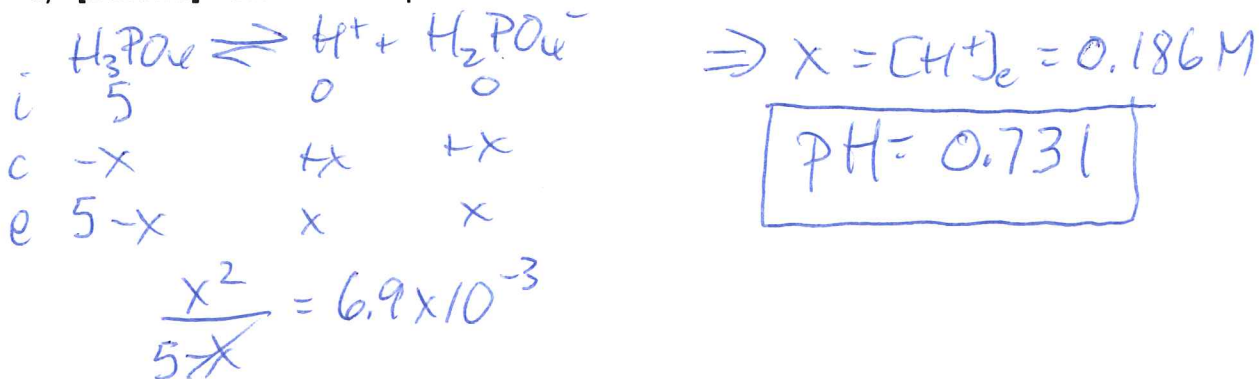 H₃PO₄ ⇌ H⁺ + H₂PO₄⁻
i 5 0 0
c -x +x +x
e 5-x x x
x² / 5-x = 6.9 x 10⁻³
⇒ x = [H⁺]ₑ = 0.186 M
pH = 0.731